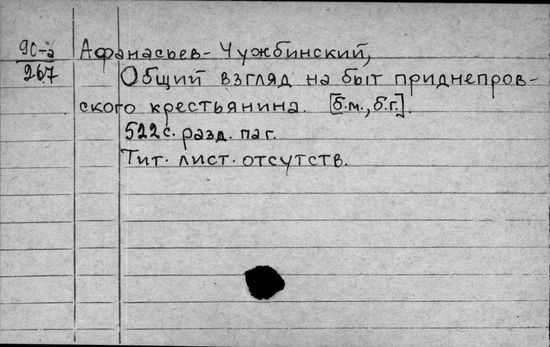 90-а Афанасьев-Чужбинский,
267 Общий взгляд на быт приднепров-
ского крестьянина. [б.м., б.г.].
522 с. разд. паг.
Тит. лист. отсутств.